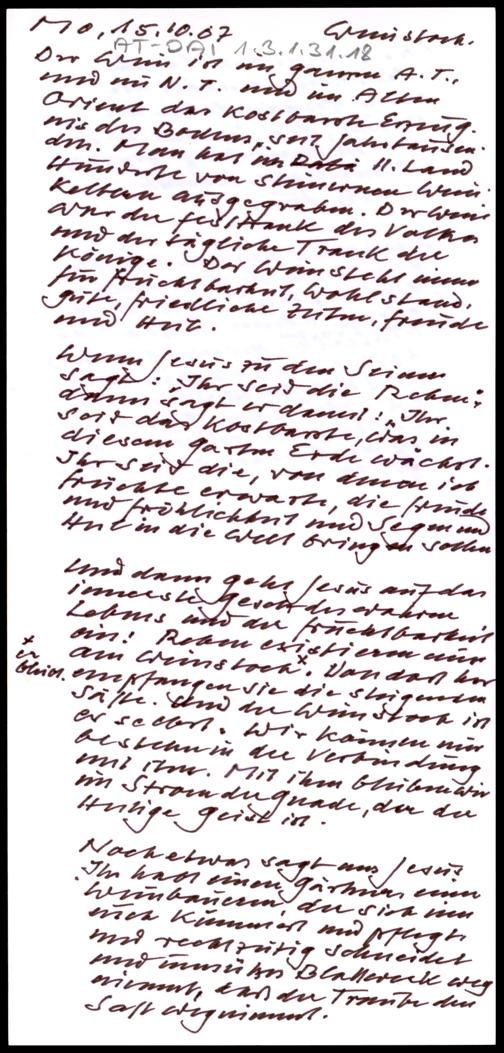 Mo, 15.10.07 Weinstock.
AT-DAI 1.3.1.31.18
Der Wein ist im ganzen A.T.,
und im N.T. und im Alten
Orient das kostbarste Erzeug-
nis des Bodens, seit Jahrtausen-
den. Man hat im Hl. Land
Hunderte von steinernen Wein
Keltern ausgegraben. Der Wein
war der Festtrank des Volkes
und der tägliche Trank der
Könige. Der Wein steht immer
für Fruchtbarkeit, Wohlstand,
gute, friedliche Zeiten, Freude
und Heil.
Wenn Jesus zu den Seinen
sagt: "Ihr seid die Reben",
dann sagt er damit: "Ihr
seid das Kostbarste, was in
diesem Garten Erde wächst.
Ihr seid die, von denen ich
Früchte erwarte, die Freude
und Fröhlichkeit und Segen und
Heil in die Welt bringen sollen
Und dann geht Jesus auf das
innerste Gesetz des wahren
Lebens und der Fruchtbarkeit
ein: Reben existieren nur
am Weinstock x. Von dort her
x
bleibt.
empfangen sie die steigenden
Säfte. Und der Weinstock ist
er selbst. Wir können nur
bestehen in der Verbindung
mit ihm. Mit ihm bleiben wir
im Strom der Gnade, der der
Heilige Geist ist.
Noch etwas sagt uns Jesus
Ihr habt einen Gärtner, einen
Weinbauern, der sich um
euch kümmert und pflegt
und rechtzeitig schneidet
und unnützes Blattwerk weg
nimmt, das der Traube den
Saft wegnimmt.